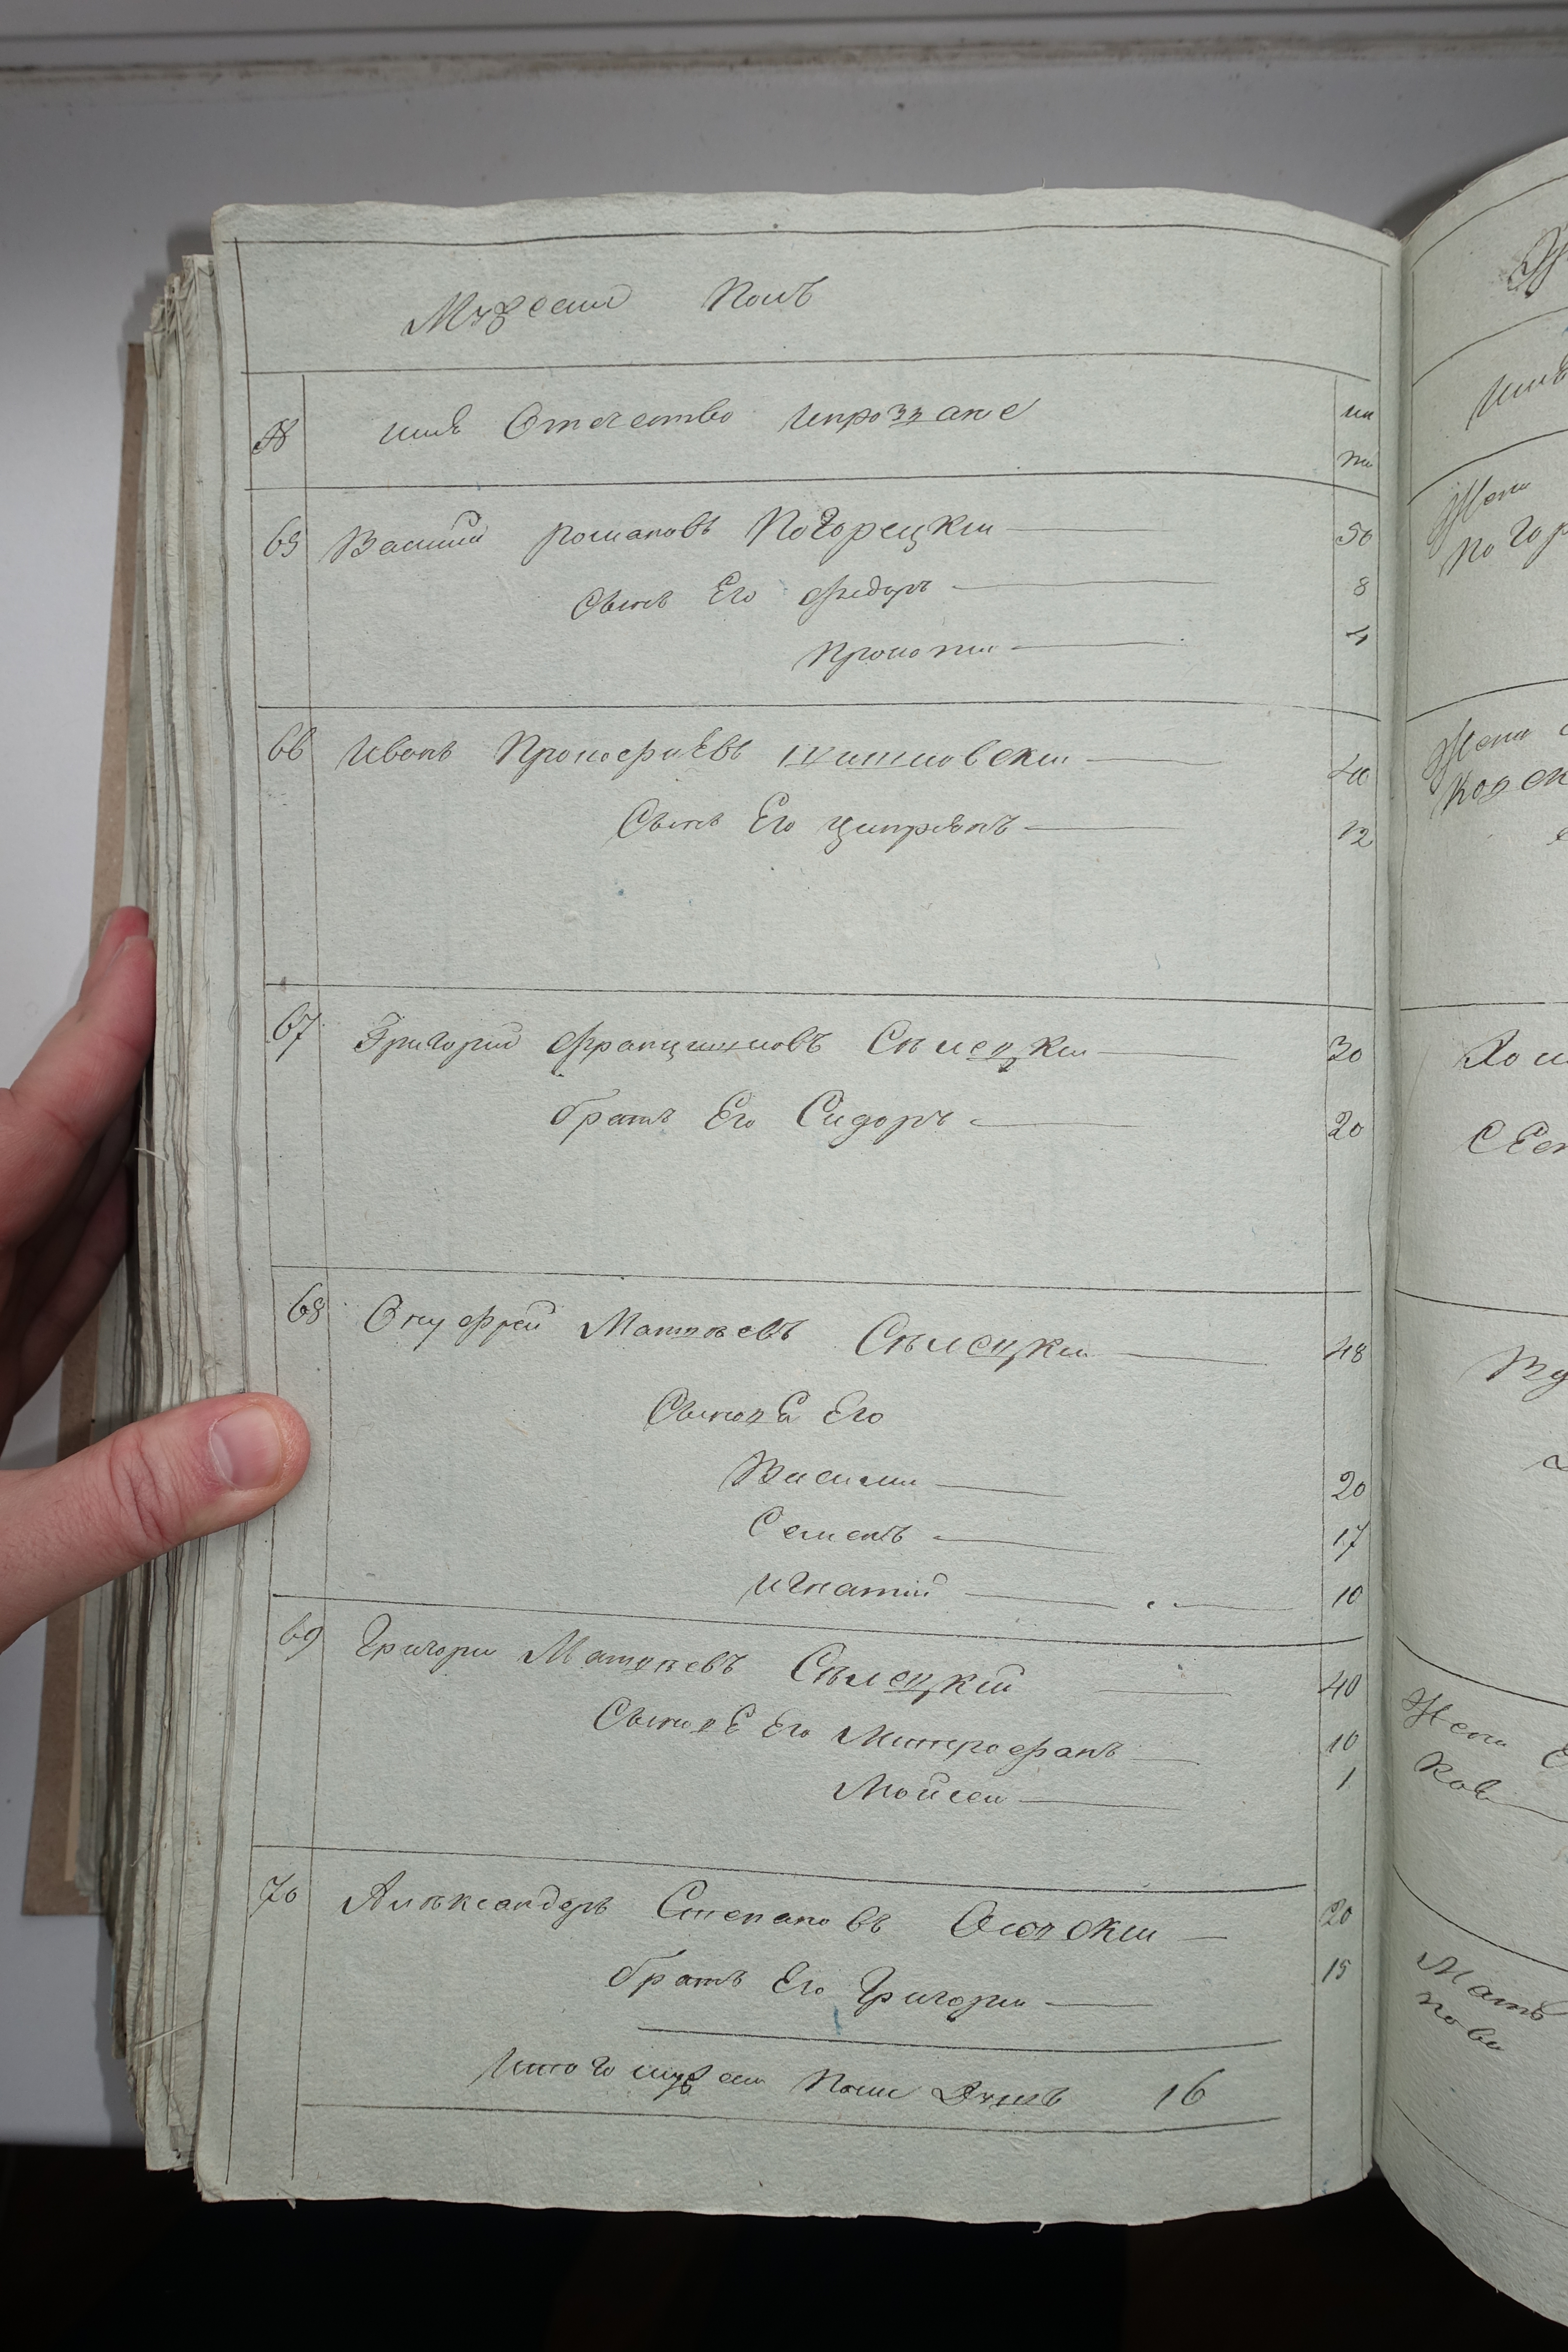 Мужеский Полъ
№ имѣ Отечество Ипрозвание
65 Василий романовъ Погорецкий 50
Сынъ Его федоръ 8
Прокопий 4
66 Иванъ Прокофиевъ 40
Сынъ Его Циприянъ 12
67 Григорий Францишковъ Сѣлецкий 30
братъ Его Сидоръ 20
68 Онуфрей Матвѣевъ Сѣлецкий 48
Сыновя Его
Василий 20
Семенъ 17
Игнатий 10
69 Григорий Матвѣевъ Сѣлецкий 40
Сыновя Его Митрофанъ 10
Мойсей 1
70 Алѣксандеръ Степановъ 20
братъ Его Григорий 15
Итого мужеска Пола Душъ 16
Жена
Погор
Жена
Жена
Ков
Мать